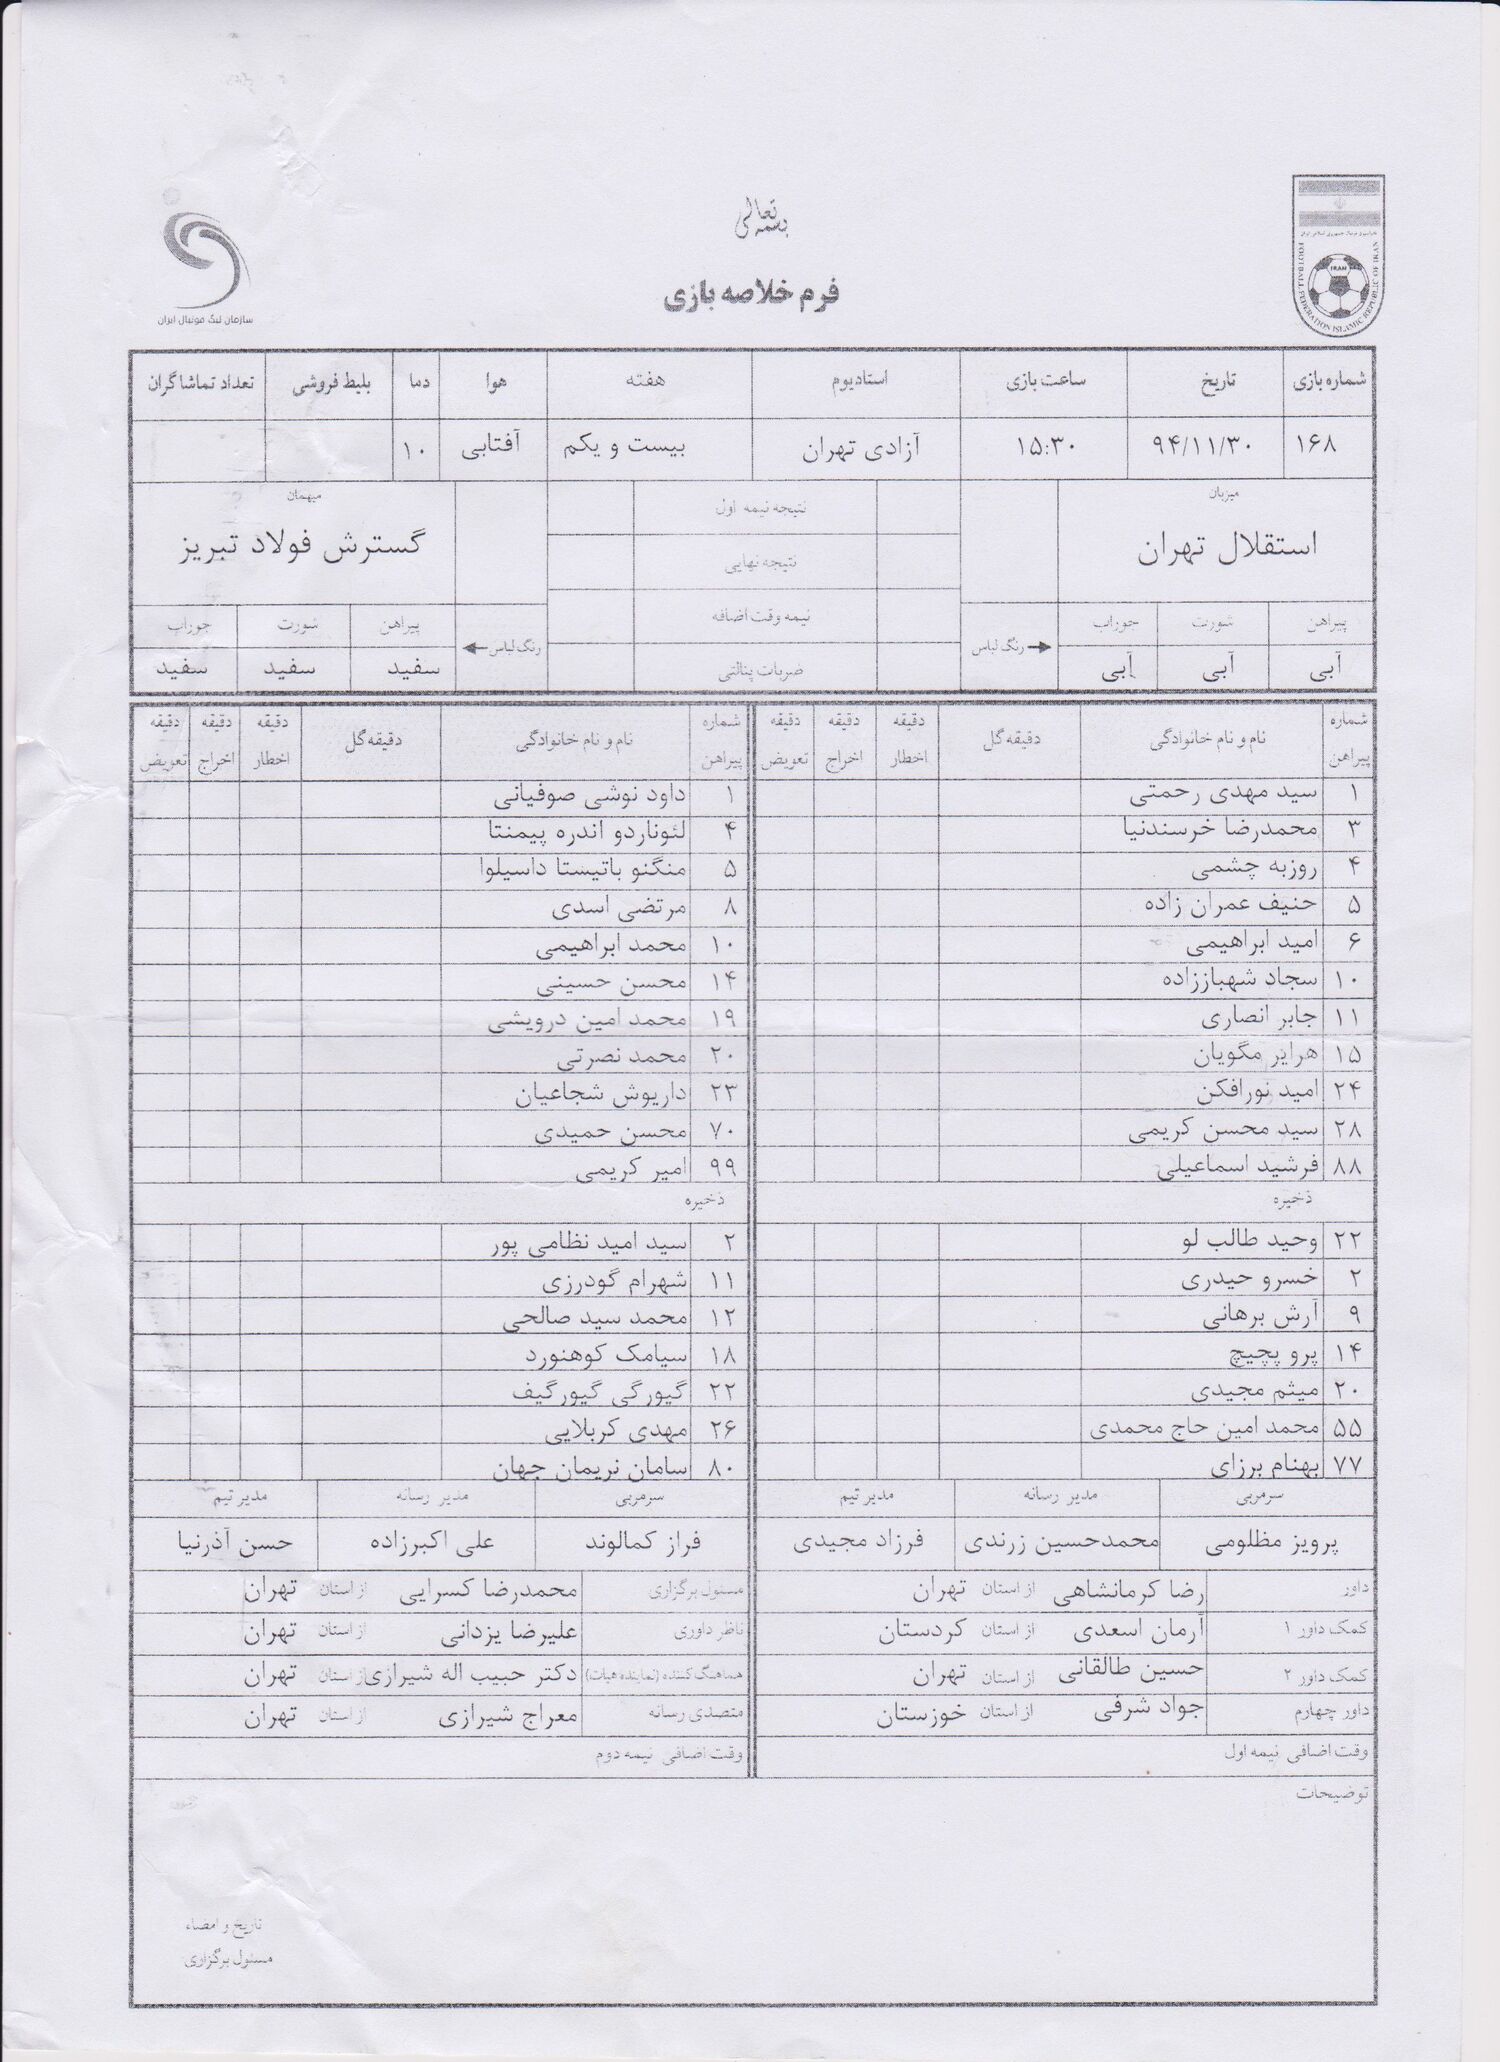 بسمه تعالی
فرم خلاصه بازی
سازمان لیگ فوتبال ایران
IRAN
FOOTBALL FEDERATION ISLAMIC REPUBLIC OF IRAN
شماره بازی تاریخ ساعت بازی استادیوم هفته هوا دما بلیط فروشی تعداد تماشاگران
۱۶۸ ۹۴/۱۱/۳۰ ۱۵:۳۰ آزادی تهران بیست و یکم آفتابی ۱۰
میزبان نتیجه نیمه اول میهمان
استقلال تهران نتیجه نهایی گسترش فولاد تبریز
پیراهن شورت جوراب رنگ لباس نیمه وقت اضافه رنگ لباس پیراهن شورت جوراب
آبی آبی آبی ضربات پنالتی سفید سفید سفید
شماره پیراهن نام و نام خانوادگی دقیقه گل دقیقه اخطار دقیقه اخراج دقیقه تعویض شماره پیراهن نام و نام خانوادگی دقیقه گل دقیقه اخطار دقیقه اخراج دقیقه تعویض
۱ سید مهدی رحمتی ۱ داود نوشی صوفیانی
۳ محمدرضا خرسندنیا ۴ لئوناردو اندره پیمنتا
۴ روزبه چشمی ۵ منگنو باتیستا داسیلوا
۵ حنیف عمران زاده ۸ مرتضی اسدی
۶ امید ابراهیمی ۱۰ محمد ابراهیمی
۱۰ سجاد شهباززاده ۱۴ محسن حسینی
۱۱ جابر انصاری ۱۹ محمد امین درویشی
۱۵ هرایر مگویان ۲۰ محمد نصرتی
۲۴ امید نورافکن ۲۳ داریوش شجاعیان
۲۸ سید محسن کریمی ۷۰ محسن حمیدی
۸۸ فرشید اسماعیلی ۹۹ امیر کریمی
ذخیره ذخیره
۲۲ وحید طالب لو ۲ سید امید نظامی پور
۲ خسرو حیدری ۱۱ شهرام گودرزی
۹ آرش برهانی ۱۲ محمد سید صالحی
۱۴ پرو پچیچ ۱۸ سیامک کوهنورد
۲۰ میثم مجیدی ۲۲ گیورگی گیورگیف
۵۵ محمد امین حاج محمدی ۲۶ مهدی کربلایی
۷۷ بهنام برزای ۸۰ سامان نریمان جهان
سرمربی مدیر رسانه مدیر تیم سرمربی مدیر رسانه مدیر تیم
پرویز مظلومی محمدحسین زرندی فرزاد مجیدی فراز کمالوند علی اکبرزاده حسن آذرنیا
داور رضا کرمانشاهی از استان تهران مسئول برگزاری محمدرضا کسرایی از استان تهران
کمک داور ۱ آرمان اسعدی از استان کردستان ناظر داوری علیرضا یزدانی از استان تهران
کمک داور ۲ حسین طالقانی از استان تهران هماهنگ کننده (نماینده هیات) دکتر حبیب اله شیرازی از استان تهران
داور چهارم جواد شرفی از استان خوزستان متصدی رسانه معراج شیرازی از استان تهران
وقت اضافی نیمه اول وقت اضافی نیمه دوم
توضیحات
تاریخ و امضاء
مسئول برگزاری: